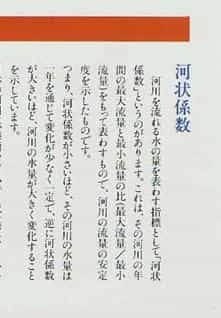 河状係数
河川を流れる水の量を表わす指標として「河状
係数」というのがあります。これは、その河川の年
間の最大流量と最小流量の比(最大流量/最小
流量)をもって表わすもので、河川の流量の安定
度を示したものです。
つまり、河状係数が小さいほど、その河川の水量は
一年を通じて変化が少なく一定で、逆に河状係数
が大きいほど、河川の水量が大きく変化すること
を示しています。